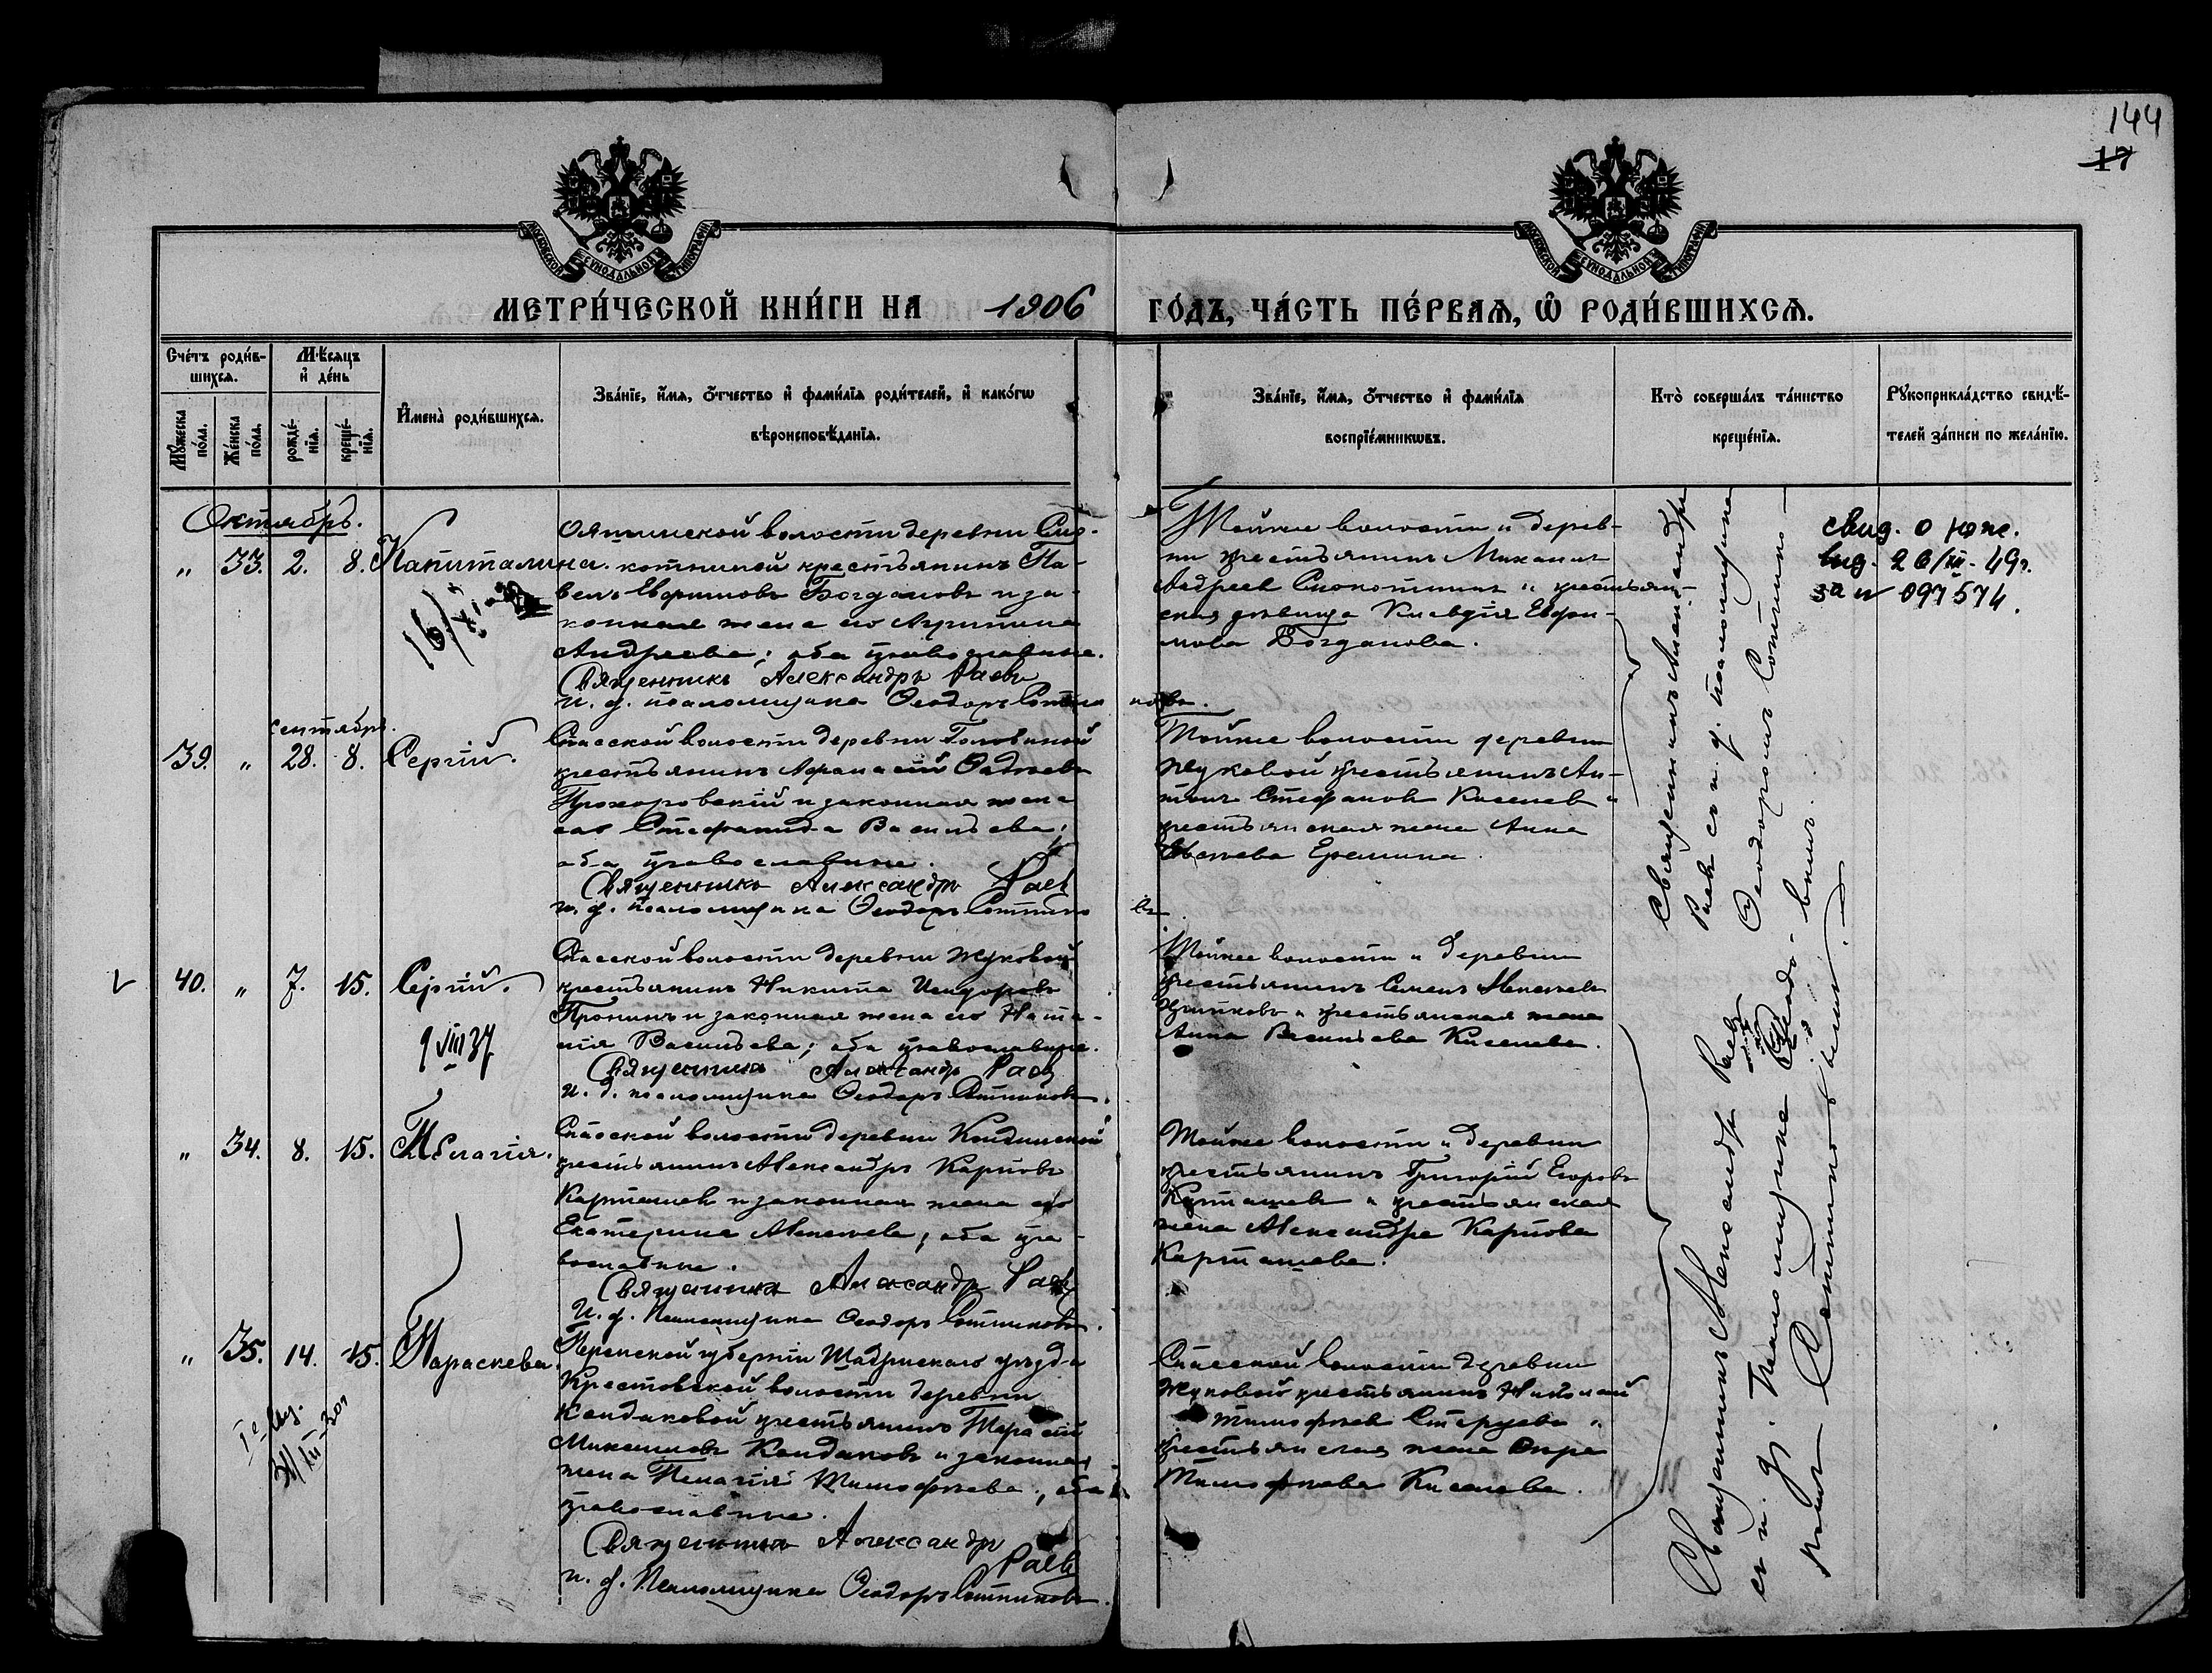 144
17
МОСКОВСКОЙ СѴНОДАЛЬНОЙ ТИПОГРАФІИ
МОСКОВСКОЙ СѴНОДАЛЬНОЙ ТИПОГРАФІИ
МЕТРИ́ЧЕСКОЙ КНИ́ГИ НА 1906 ГО́ДЪ, ЧА́СТЬ ПЕ́РВАѦ, Ѽ РОДИ́ВШИХСѦ.
Сче́тъ роди́в-
шихсѧ.
Мꙋ́жеска по́ла.
Же́нска по́ла.
Мѣ́сѧцъ
и҆ де́нь
рожде́-
нїѧ.
креще́-
нїѧ.
И҆мена̀ роди́вшихсѧ.
Зва́нїе, и҆́мѧ, ѻ҆́тчество и҆ фами́лїѧ роди́телей, и҆ како́гѡ
вѣроисповѣ́данїѧ.
Зва́нїе, и҆́мѧ, ѻ҆́тчество и҆ фами́лїѧ
воспрїе́мникѡвъ.
Кто̀ соверша́лъ та́инство
креще́нїѧ.
Рꙋкоприкла́дство свидѣ́-
телей за́писи по жела́нїю.
Октябрь.
" 33. 2. 8. Капиталина.
волости деревни Ско-
котиной крестьянинъ Па-
велъ Евфимовъ Богдановъ и за-
конная жена его Агрипина
Андреева; оба православные.
Священникъ Александръ Раевъ
и. д. псаломщика Ѳеодоръ Сотниковъ.
Тойже волости и дерев-
ни крестьянинъ Михаилъ
Андреев Скокотинъ и крестьян-
ская дѣвица Клавдія Евфи-
мова Богданова.
свид. о рож.
выд. 26/III-49г.
за № 097574.
сентябрь.
39. " 28. 8. Сергій.
Спасской волости деревни Головиной
крестьянинъ Афанасій Фадѣевъ
Прохоровскій и законная жена
его Стефанида Васильева;
оба православные.
Священникъ Александръ Раевъ
и. д. псаломщика Ѳеодоръ Сотниковъ.
Тойже волости деревни
Жуковой крестьянинъ Ан-
тонъ Стефановъ Киселевъ и
крестьянская жена Анна
Еремина.
Священникъ Александръ
Раевъ съ и. д. псаломщика
Ѳеодоромъ Сотнико-
вымъ.
40. " 7. 15. Сергій.
9 VIII 37
Спасской волости деревни Жуковой
крестьянинъ Никита Исидоровъ
Пронинъ и законная жена его Ната-
лія Васильева; оба православные.
Священникъ Александръ Раевъ
и. д. псаломщика Ѳеодоръ Сотниковъ.
Тойже волости и деревни
крестьянинъ Семенъ Алексѣевъ
и крестьянская жена
Анна Васильева Киселева.
" 34. 8. 15. Пелагія.
Спасской волости деревни
крестьянинъ Александръ Карповъ
Карташевъ и законная жена его
Екатерина Алексѣева; оба пра-
вославные.
Священникъ Александръ Раевъ
И. д. Псаломщика Ѳеодоръ Сотниковъ.
Тойже волости и деревни
крестьянинъ Григорій Егоровъ
Карташевъ и крестьянская
жена Александра Карпова
Карташева.
" 35. 14. 15. Параскева.
Пермской губерніи Шадринскаго уѣзда
Крестовской волости деревни
Кандаковой крестьянинъ Тарасій
Кандаковъ и законная
жена Пелагія Тимофѣева; оба
православные.
Священникъ Александръ
Раевъ
и. д. Псаломщика Ѳеодоръ Сотниковъ.
Спасской волости деревни
Жуковой крестьянинъ Николай
Тимофѣевъ и
крестьянская жена
Тимофѣева Киселева.
Священникъ Александръ Раевъ
съ и. д. Псаломщика Ѳеодо-
ромъ Сотниковымъ.